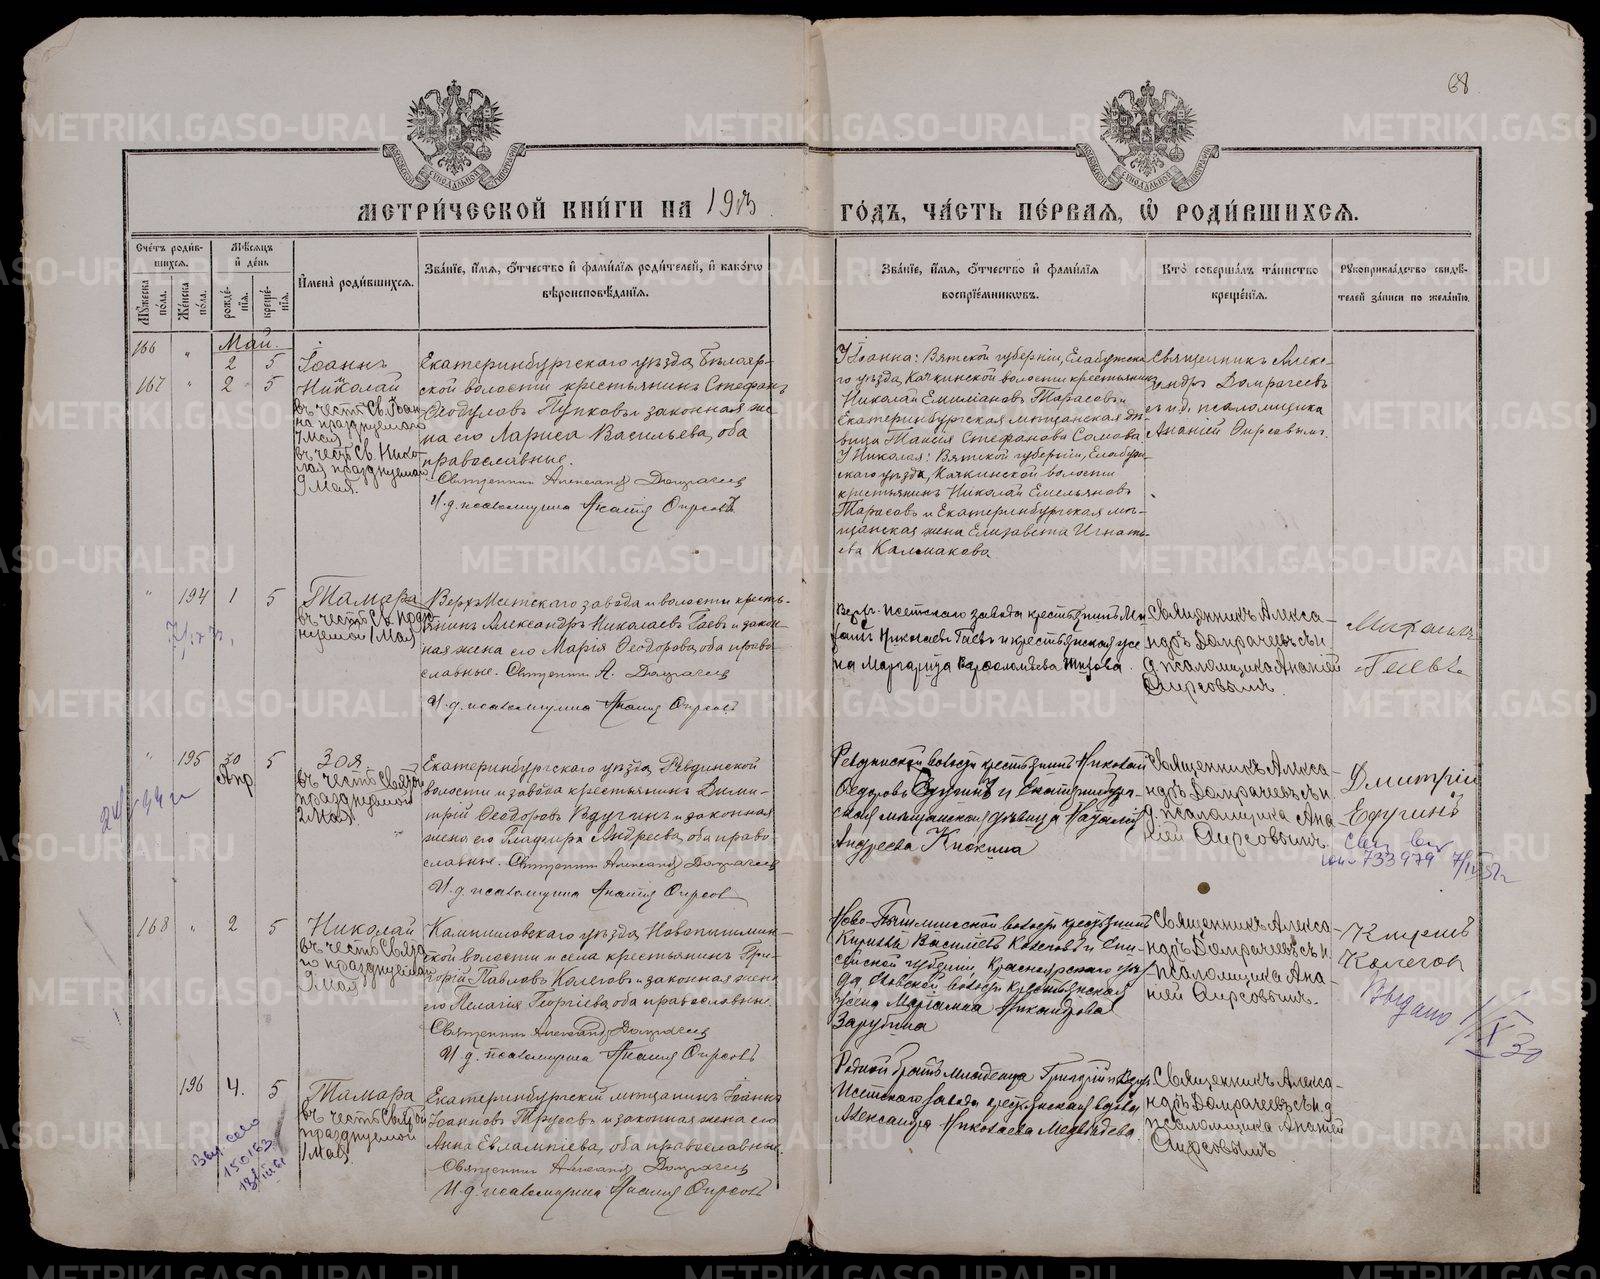 68
МЕТРИ́ЧЕСКОЙ КНИ́ГИ НА 1913
ГО́ДЪ, ЧА́СТЬ ПЕ́РВАЯ, Ѡ҆ РОДИ́ВШИХСЯ.
Сче́тъ роди́в-
шихся.
Мѣ́сяцъ
и҆ де́нь
Мꙋ́жеска по́ла.
Же́нска по́ла.
рожде́-
нїя.
креще́-
нїя.
И҆мена̀ роди́вшихся.
Зва́нїе, и҆́мя, ѻ҆́тчество и҆ фами́лїя роди́телей, и҆ како́гѡ
вѣроисповѣ́данїя.
Зва́нїе, и҆́мя, ѻ҆́тчество и҆ фами́лїя
воспрїе́мникѡвъ.
Кто̀ соверша́лъ та́инство
креще́нїя.
Рꙋкоприкла́дство свидѣ́-
телей за́писи по жела́нїю.
Май.
166 " 2 5 Іоаннъ
167 " 2 5 Николай
въ честь Св. Іоан-
на празднуемаго
7 Мая
въ честь Св. Нико-
лая празднуемаго
9 Мая.
Екатеринбургскаго уѣзда, Бѣлояр-
ской волости крестьянинъ Стефанъ
Ѳеодуловъ Пупковъ и законная же-
на его Лариса Васильева, оба
православные.
Священникъ Александръ Домрачевъ
И. д. псаломщика Ананія Ѳирсовъ
У Іоанна: Вятской губерніи, Елабужска-
го уѣзда, Качкинской волости крестьянинъ
Николай Емиліановъ Тарасовъ и
Екатеринбургская мѣщанская дѣ-
вица Таисія Стефанова Сомова.
У Николая: Вятской губерніи, Елабуж-
скаго уѣзда, Качкинской волости
крестьянинъ Николай Емельяновъ
Тарасовъ и Екатеринбургская мѣ-
щанская жена Елизавета Игнать-
ева Калмакова
Священникъ Алекс-
андръ Домрачевъ
съ и.д. псаломщика
Ананіей Ѳирсовымъ.
" 194 1 5 Тамара
въ честь Св. празд-
нуемой 1 Мая
Верхъ-Исетскаго завода и волости кресть-
янинъ Александръ Николаевъ Гаевъ и закон-
ная жена его Марія Ѳеодорова, оба право-
славные. Священникъ А. Домрачевъ
И. д. псаломщика Ананія Ѳирсовъ
Верх-Исетскаго завода крестьянинъ Ми-
хаилъ Николаевъ Гаевъ и крестьянская же-
на Маргарита Варѳоломѣева Титова.
Священникъ Алекса-
ндръ Домрачевъ съ и.
д. псаломщика Ананіей
Ѳирсовымъ.
Михаилъ
Гаевъ
" 195 30 Апр. 5 Зоя
въ честь Святой
празднуемой
2 Мая.
Екатеринбургскаго уѣзда, Ревдинской
волости и завода крестьянинъ Дими-
трій Ѳеодоровъ Едугинъ и законная
жена его Глафира Андреева, оба право-
славные. Священникъ Александръ Домрачевъ
И. д. псаломщика Ананія Ѳирсовъ
Ревдинской волости крестьянинъ Николай
Ѳедоровъ Едугинъ и Екатеринбург-
ская мѣщанская дѣвица Наталія
Андреева Кисякина
Священникъ Алекса-
ндръ Домрачевъ съ и.
д. псаломщика Ана-
ніей Ѳирсовымъ.
Дмитрій
Едугинъ
733979
168 " 2 5 Николай
въ честь Свята-
го празднуемаго
9 Мая
Камышловскаго уѣзда, Новопышмин-
ской волости и села крестьянинъ Гри-
горій Павловъ Колеговъ и законная жена
его Пелагія Георгіева, оба православные.
Священникъ Александръ Домрачевъ
И. д. псаломщика Ананія Ѳирсовъ
Ново-Пышминской волости крестьянинъ
Кириллъ Васильевъ Колеговъ и Ени-
сейской губерніи, Красноярскаго уѣз-
да, волости крестьянская
жена Маріанна Никандрова
Зарубина
Священникъ Алекса-
ндръ Домрачевъ съ и.
д. псаломщика Ана-
ніей Ѳирсовымъ.
Колегов
Выдано 1/IX 30
196 4. 5 Тамара
въ честь Святой
празднуемой
1 Мая
Екатеринбургскій мѣщанинъ Іоаннъ
Іоанновъ Трусовъ и законная жена его
Анна Евлампіева, оба православные.
Священникъ Александръ Домрачевъ
И. д. псаломщика Ананія Ѳирсовъ
Родной братъ младенца Григорій и Верх-
Исетскаго завода крестьянская вдова
Александра Николаева Медвѣдева.
Священникъ Алекса-
ндръ Домрачевъ съ и. д.
псаломщика Ананіей
Ѳирсовымъ.
150163
METRIKI.GASO-URAL.RU